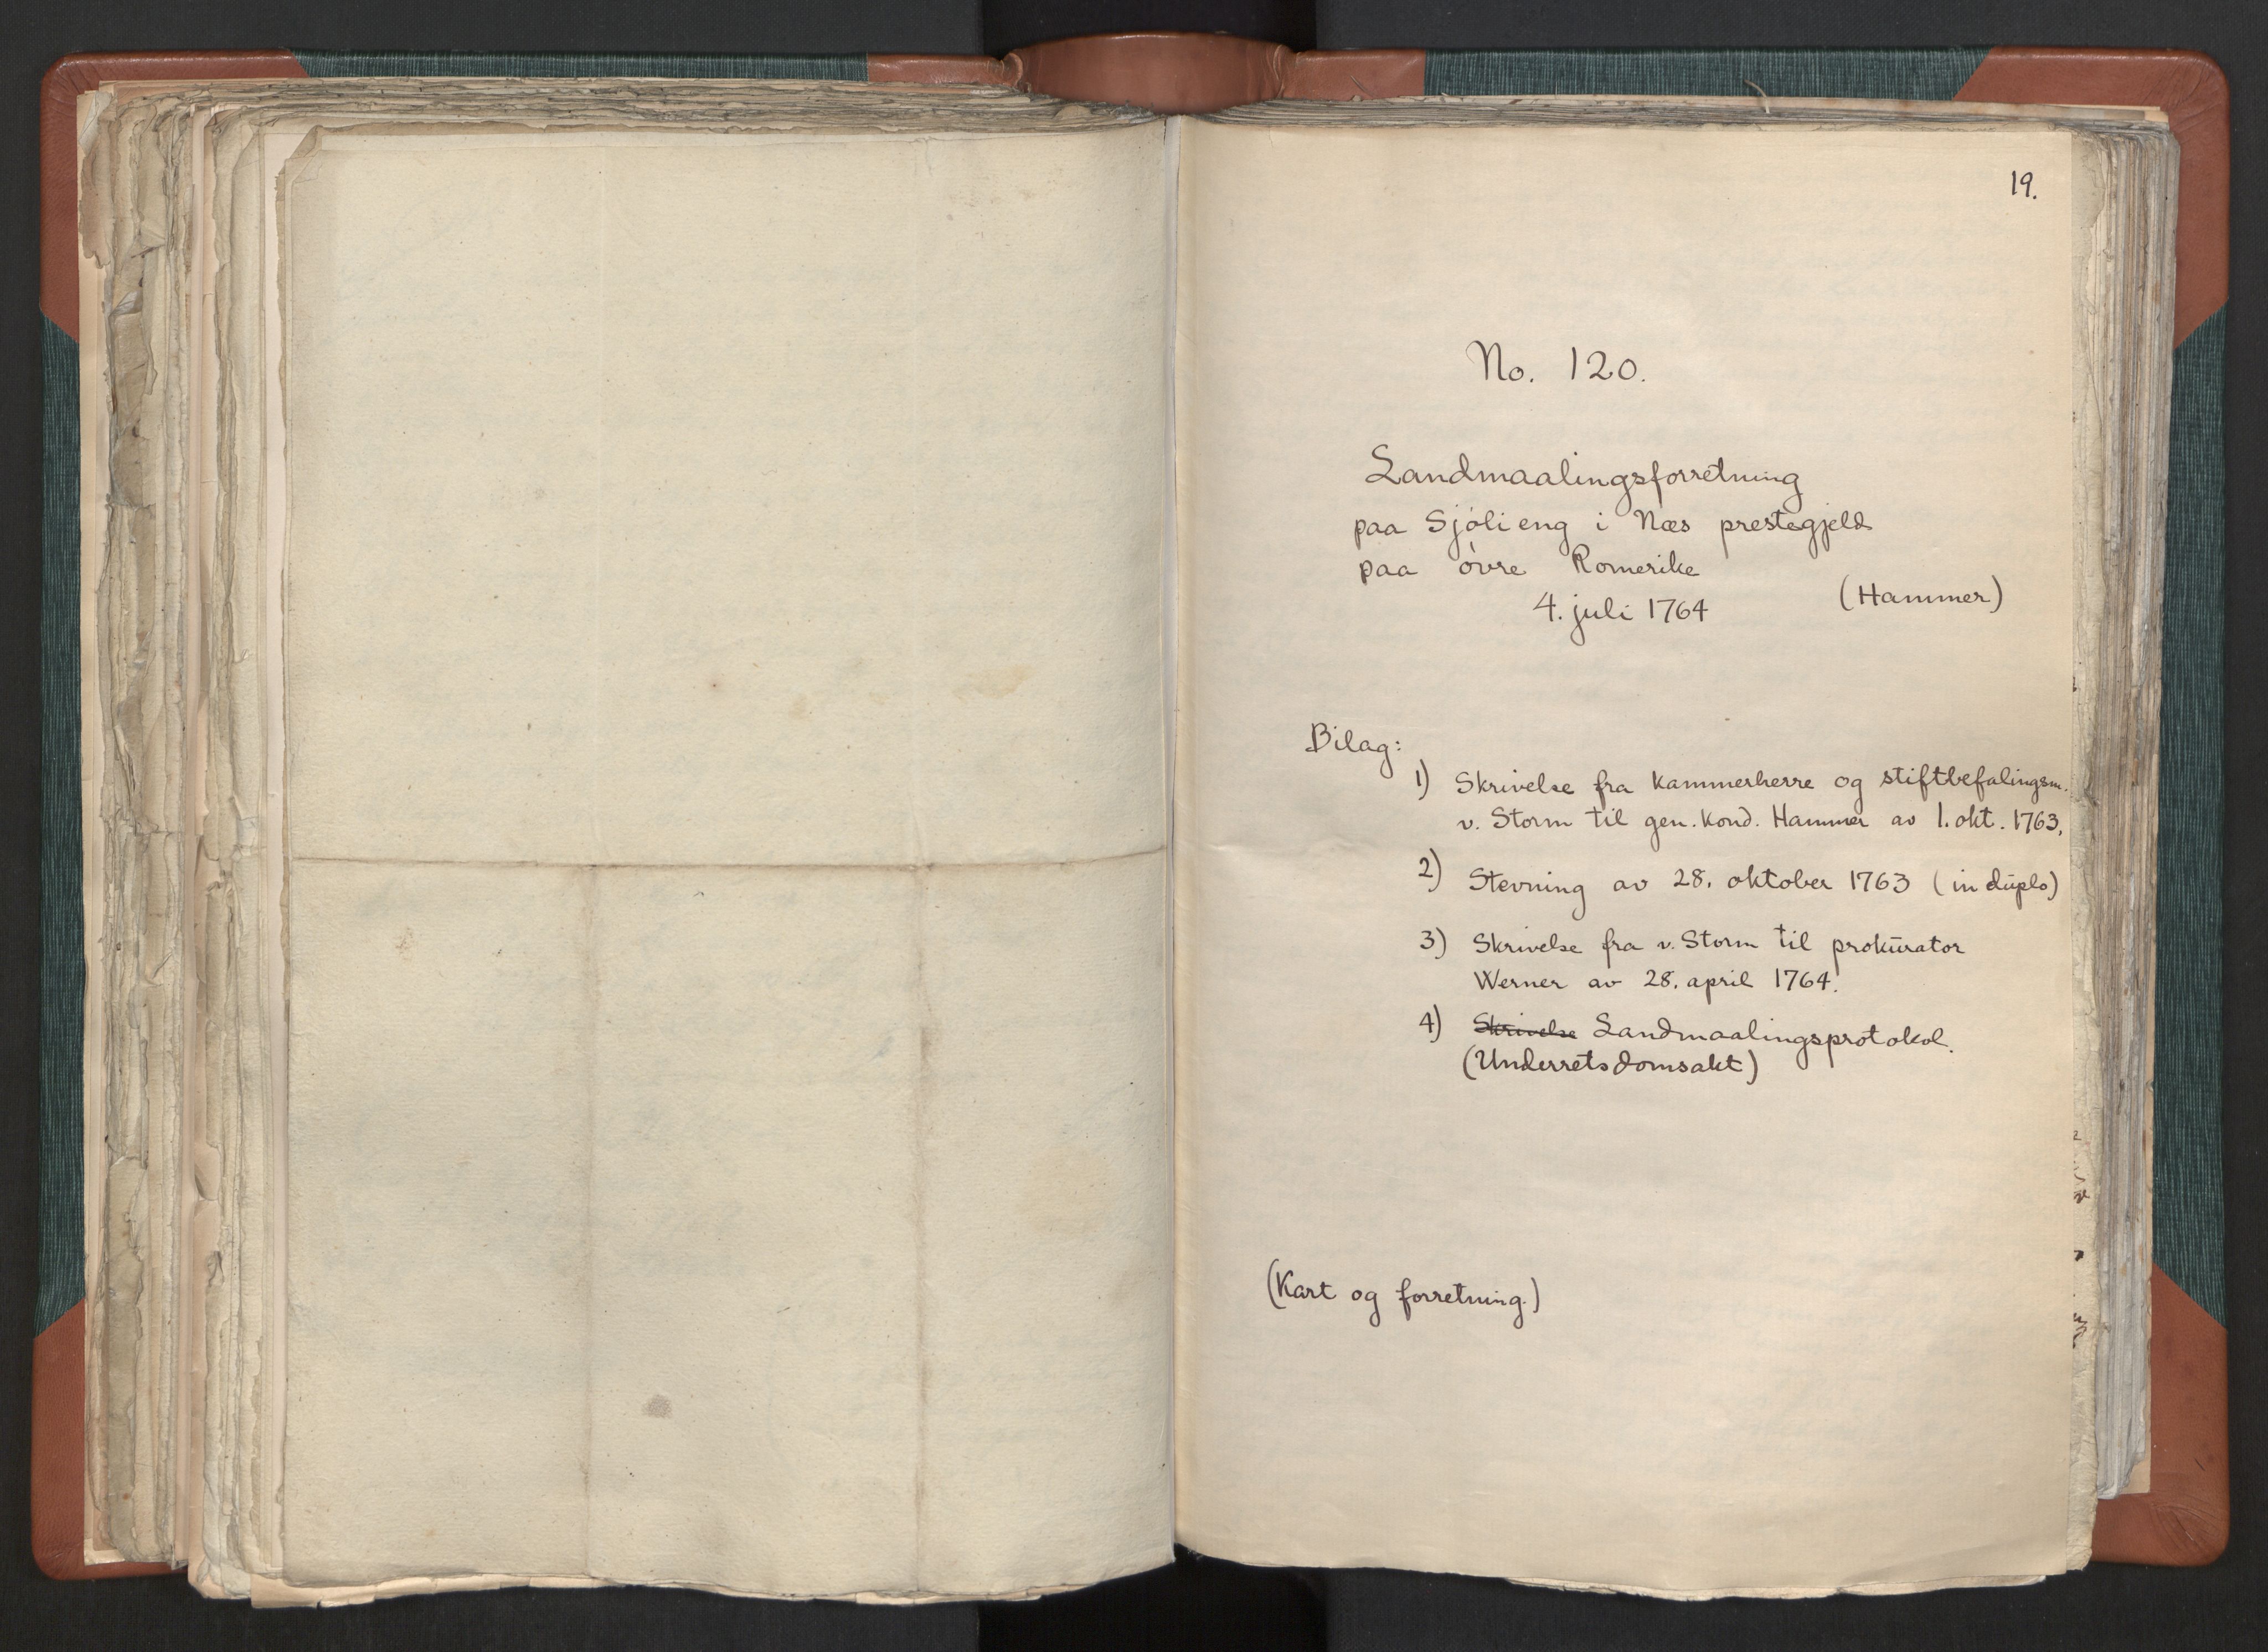 19.
No. 120.
Landmaalingsforretning
paa Sjøli eng i Næs prestegjeld
paa øvre Romerike
4. juli 1764 (Hammer)
Bilag:
1) Skrivelse fra kammerherre og stiftbefalingsm.
v. Storm til gen. kond. Hammer av 1. okt. 1763.
2) Stevning av 28. oktober 1763 (in duplo)
3) Skrivelse fra v. Storm til prokurator
Werner av 28. april 1764.
4) Skrivelse Landmaalingsprotokol.
(Underretsdomsakt)
(Kart og forretning.)